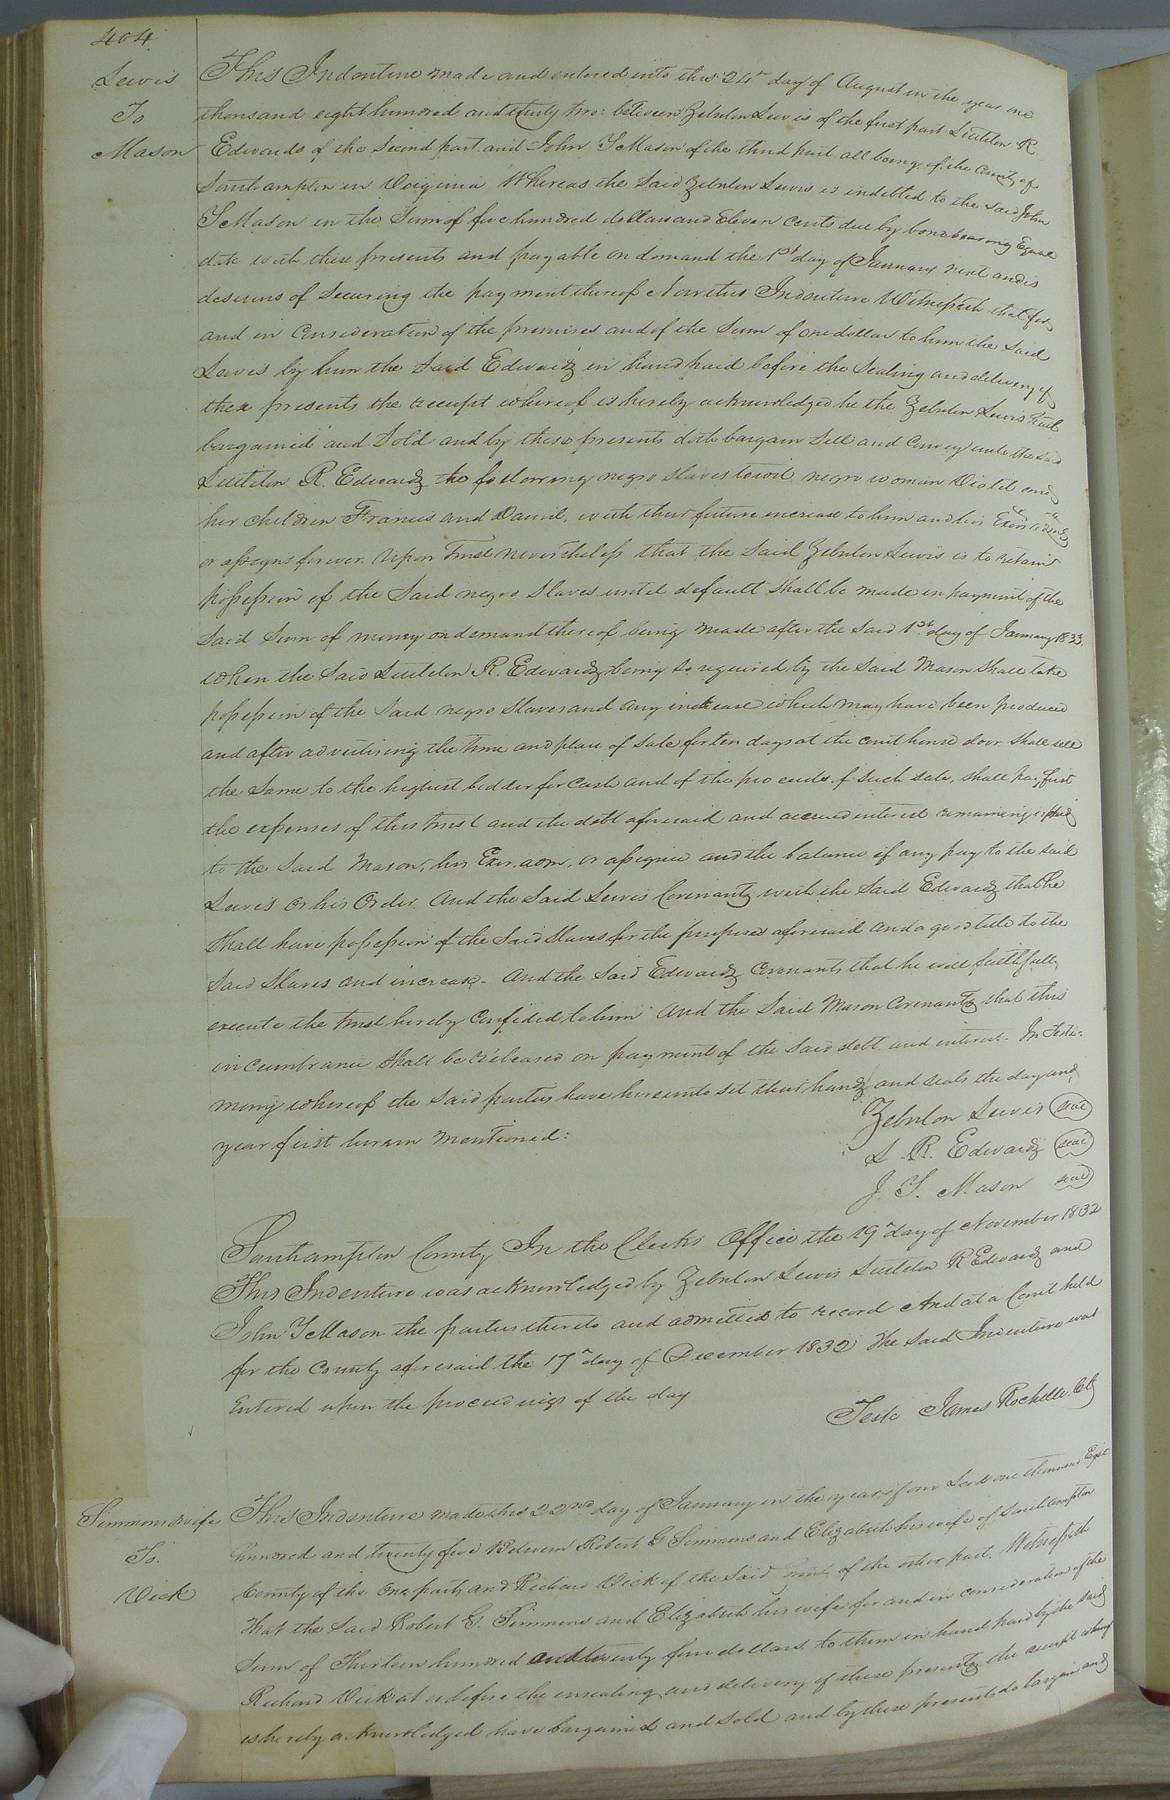 404
Lewis
To
Mason
This Indenture made and entered into this 24th day of August in the year one
thousand eight hundred and thirty two: between Zebulon Lewis of the first part Littleton R.
Edwards of the Second part and John Y Mason of the third part all being of the County of
Southampton in Virginia Whereas the Said Zebulon Lewis is indebted to the said John
Y Mason in the Sum of five hundred dollars and Eleven Cents due by bond bearing Equal
date with these presents and payable on demand the 1st day of January next and is
desirous of Securing the payment thereof Now this Indenture Witnesseth that for
and in Consideration of the premises and of the Sum of one dollar to him the Said
Lewis by him the Said Edwards in hand paid before the Sealing and delivery of
these presents the receipt whereof is hereby acknowledged he the Zebulon Lewis hath
bargained and Sold and by these presents doth bargain Sell and Convey unto the said
Littleton R. Edwards the following negro slaves to wit negro woman Violet and
her children Francis and David, with their future increase to him and his Exors
or assigns forever. Upon Trust nevertheless that the Said Zebulon Lewis is to retain
possession of the Said negro Slaves until default Shall be made in payment of the
Said Sum of money on demand thereof being made after the Said 1st day of January 1833.
When the Said Littleton R. Edwards being so required by the Said Mason Shall take
possession of the Said negro Slaves and any increase which may have been produced
and after advertising the time and place of Sale for ten days at the court house door. Shall sell
the Same to the highest bidder for Cash and of the proceeds of Such sale, shall pay first
the expenses of this trust and the debt aforesaid and accrued interest remaining unpaid
to the Said Mason, his Exor. adm. or assignee and the balance if any pay to the said
Lewis or his Order. And the Said Lewis Covenants with the Said Edwards that he
Shall have possession of the Said Slaves for the purposes aforesaid and a good title to the
Said Slaves and increase. And the Said Edwards Covenants that he will faithfully
execute the trust hereby Confided to him And the Said Mason Covenants that this
incumbrance Shall be released on payment of the Said debt and interest. In Testi-
mony whereof the Said parties have hereunto set their hands and seals the day and
year first herein mentioned:
Zebulon Lewis seal
L. R. Edwards seal
J. Y. Mason seal
Southampton County In the Clerks Office the 19th day of November 1832
This Indenture was acknowledged by Zebulon Lewis Littleton R Edwards and
John Y Mason the parties thereto and admitted to record And at a Court held
for the County aforesaid the 17th day of December 1832 The Said Indenture was
Entered upon the proceedings of the day
Teste James Rochelle Clk
Simmons & wife
To.
Vick
This Indenture made this 22nd day of January in the year of our Lord one thousand Eight
hundred and twenty five Between Robert G Simmons and Elizabeth his wife of Southampton
County of the One part, and Richard Vick of the Said of the other part. Witnesseth
That the Said Robert G. Simmons and Elizabeth his wife for and in consideration of the
Sum of Thirteen hundred and twenty four dollars to them in hand paid by the said
Richard Vick at or before the ensealing and delivery of these presents, the receipt whereof
is hereby acknowledged have bargained and Sold and by these presents do bargain and